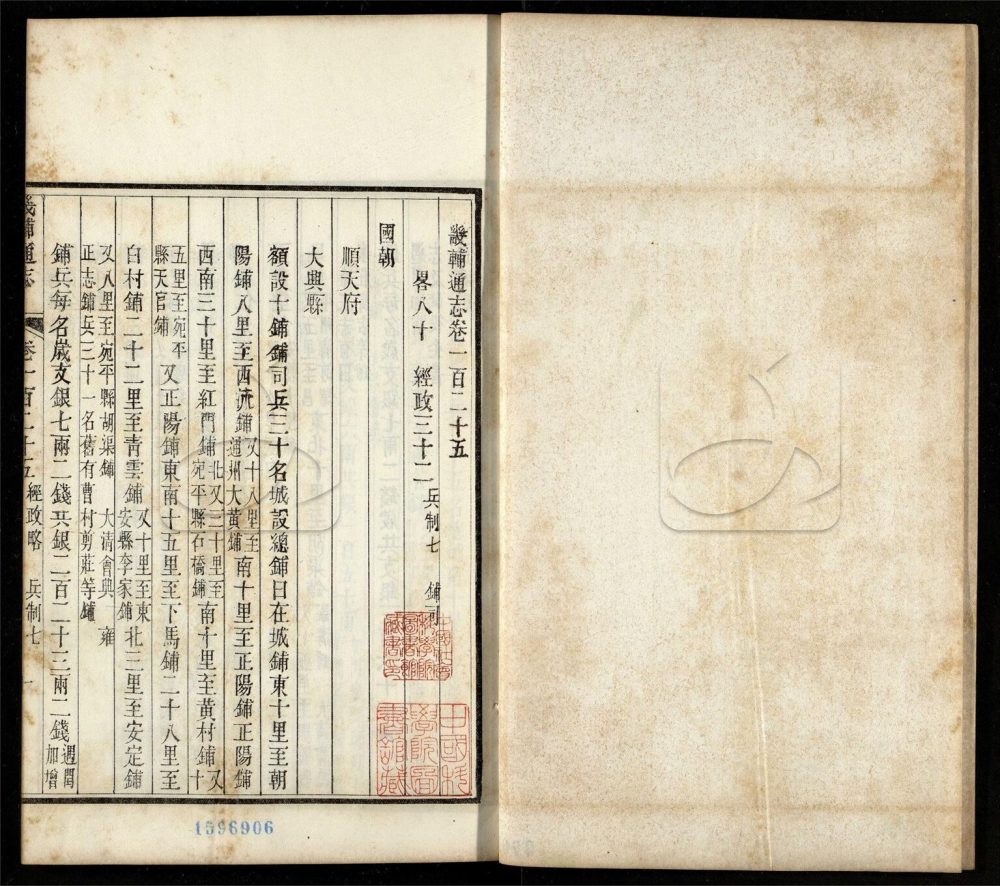 畿輔通志卷一百二十五
畧八十 經政三十二 兵制七 鋪司
國朝
順天府
大興縣
額設十鋪鋪司兵三十名城設總鋪曰在城鋪東十里至朝
陽鋪八里至西流鋪 又十八里至通州大黃鋪 南十里至正陽鋪正陽鋪
西南三十里至紅門鋪 北又三十里至宛平縣石橋鋪 南千里至黃村鋪 又十
五里至宛平縣天官鋪 又正陽鋪東南十五里至下馬鋪二十八里至
白村鋪二十二里至靑雲鋪 又十里至東安縣李家鋪 北三里至安定鋪
又八里至宛平縣胡渠鋪 大淸會典 雍
正志鋪兵三十一名舊有曹村剪莊等鋪
鋪兵每名歲支銀七兩二錢共銀二百二十三兩二錢 遇閏加增
畿輔通志 卷一百二十五 經政略 兵制七 一
中國社會科學院圖書館藏書印
中國科學院圖書館藏
1596906